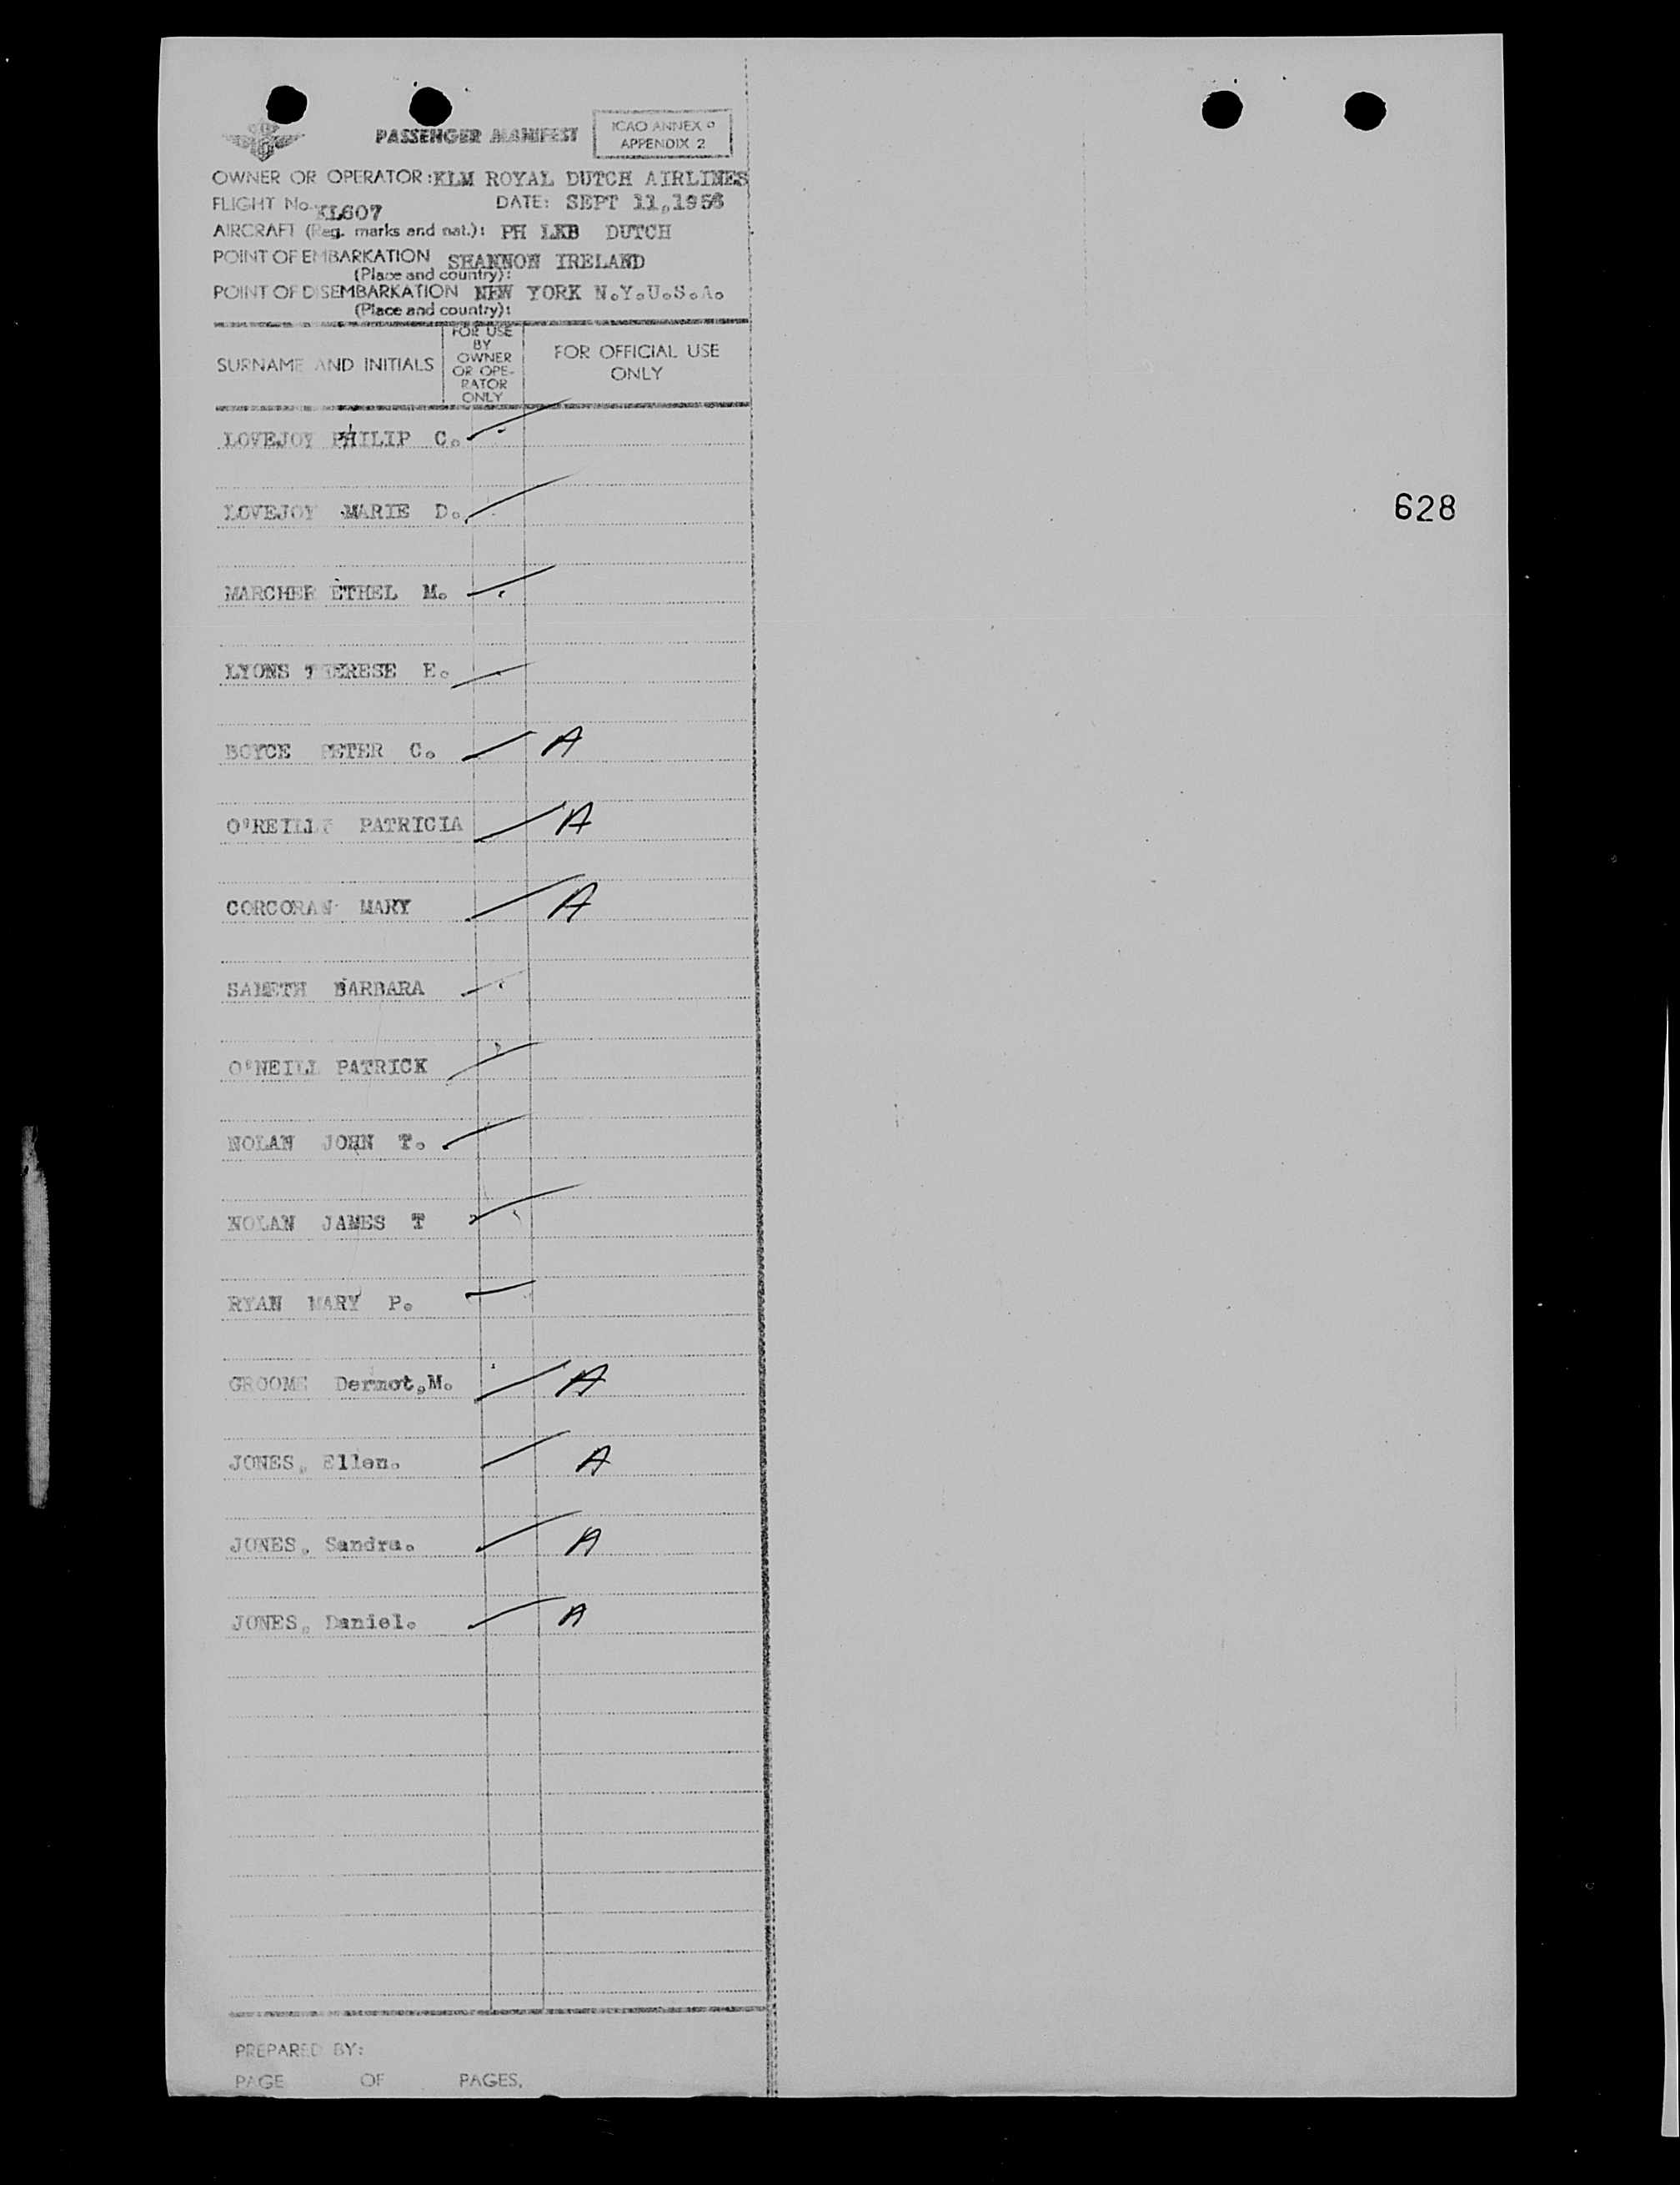 PASSENGER MANIFEST
ICAO ANNEX 9
APPENDIX 2
OWNER OR OPERATOR: KLM ROYAL DUTCH AIRLINES
FLIGHT No. KL607 DATE: SEPT 11,1956
AIRCRAFT (Reg. marks and nat.): PH LKB DUTCH
POINT OF EMBARKATION SHANNON IRELAND
(Place and country):
POINT OF DISEMBARKATION NEW YORK N.Y.U.S.A.
(Place and country):
SURNAME AND INITIALS
FOR USE
BY
OWNER
OR OPE-
RATOR
ONLY
FOR OFFICIAL USE
ONLY
LOVEJOY PHILIP C.
628
LOVEJOY MARIE D.
MARCHER ETHEL M.
LYONS THERESE E.
BOYCE PETER C. A
O'REILLY PATRICIA A
CORCORAN MARY A
SAMETH BARBARA
O'NEILL PATRICK
NOLAN JOHN T.
NOLAN JAMES T
RYAN MARY P.
GROOME Dermot,M. A
JONES, Ellen. A
JONES, Sandra. A
JONES, Daniel. A
PREPARED BY:
PAGE OF PAGES.